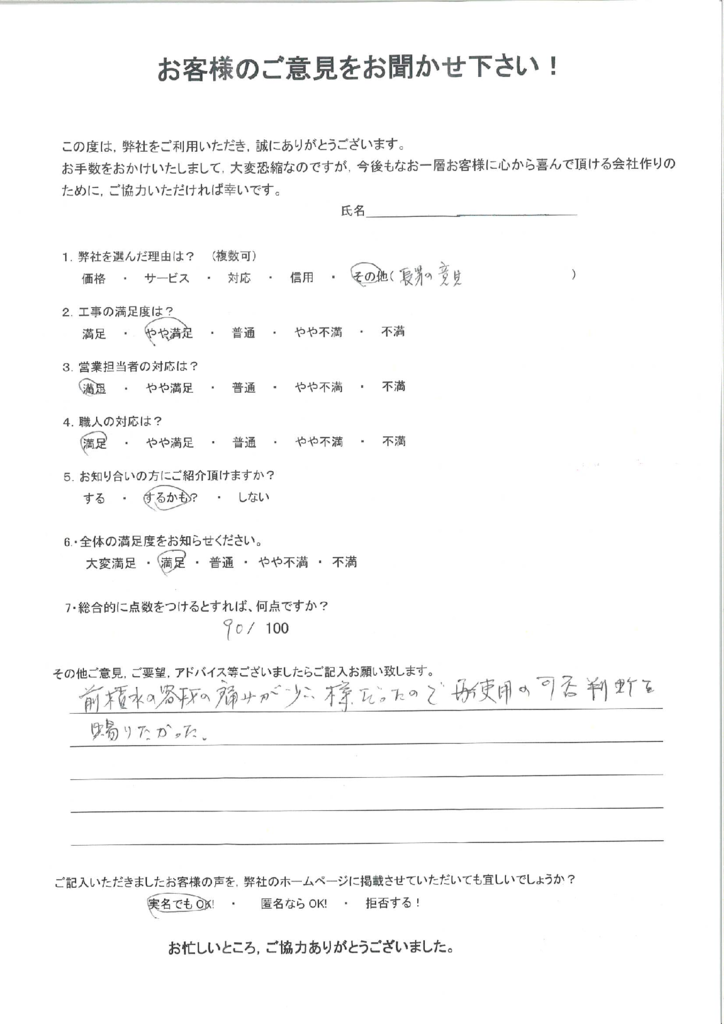 お客様のご意見をお聞かせ下さい！
この度は，弊社をご利用いただき，誠にありがとうございます。
お手数をおかけいたしまして，大変恐縮なのですが，今後もなお一層お客様に心から喜んで頂ける会社作りの
ために，ご協力いただければ幸いです。
氏名
1．弊社を選んだ理由は？ （複数可）
価格 ・ サービス ・ 対応 ・ 信用 ・ その他（長男の意見）
2．工事の満足度は？
満足 ・ やや満足 ・ 普通 ・ やや不満 ・ 不満
3．営業担当者の対応は？
満足 ・ やや満足 ・ 普通 ・ やや不満 ・ 不満
4．職人の対応は？
満足 ・ やや満足 ・ 普通 ・ やや不満 ・ 不満
5．お知り合いの方にご紹介頂けますか？
する ・ するかも？ ・ しない
6.・全体の満足度をお知らせください。
大変満足 ・ 満足 ・ 普通 ・ やや不満 ・ 不満
7・総合的に点数をつけるとすれば、何点ですか？
90/ 100
その他ご意見，ご要望，アドバイス等ございましたらご記入お願い致します。
前 の の痛みが少い様だったので再使用の可否判断を
賜りたかった。
ご記入いただきましたお客様の声を，弊社のホームページに掲載させていただいても宜しいでしょうか？
実名でもOK! ・ 匿名ならOK! ・ 拒否する！
お忙しいところ，ご協力ありがとうございました。